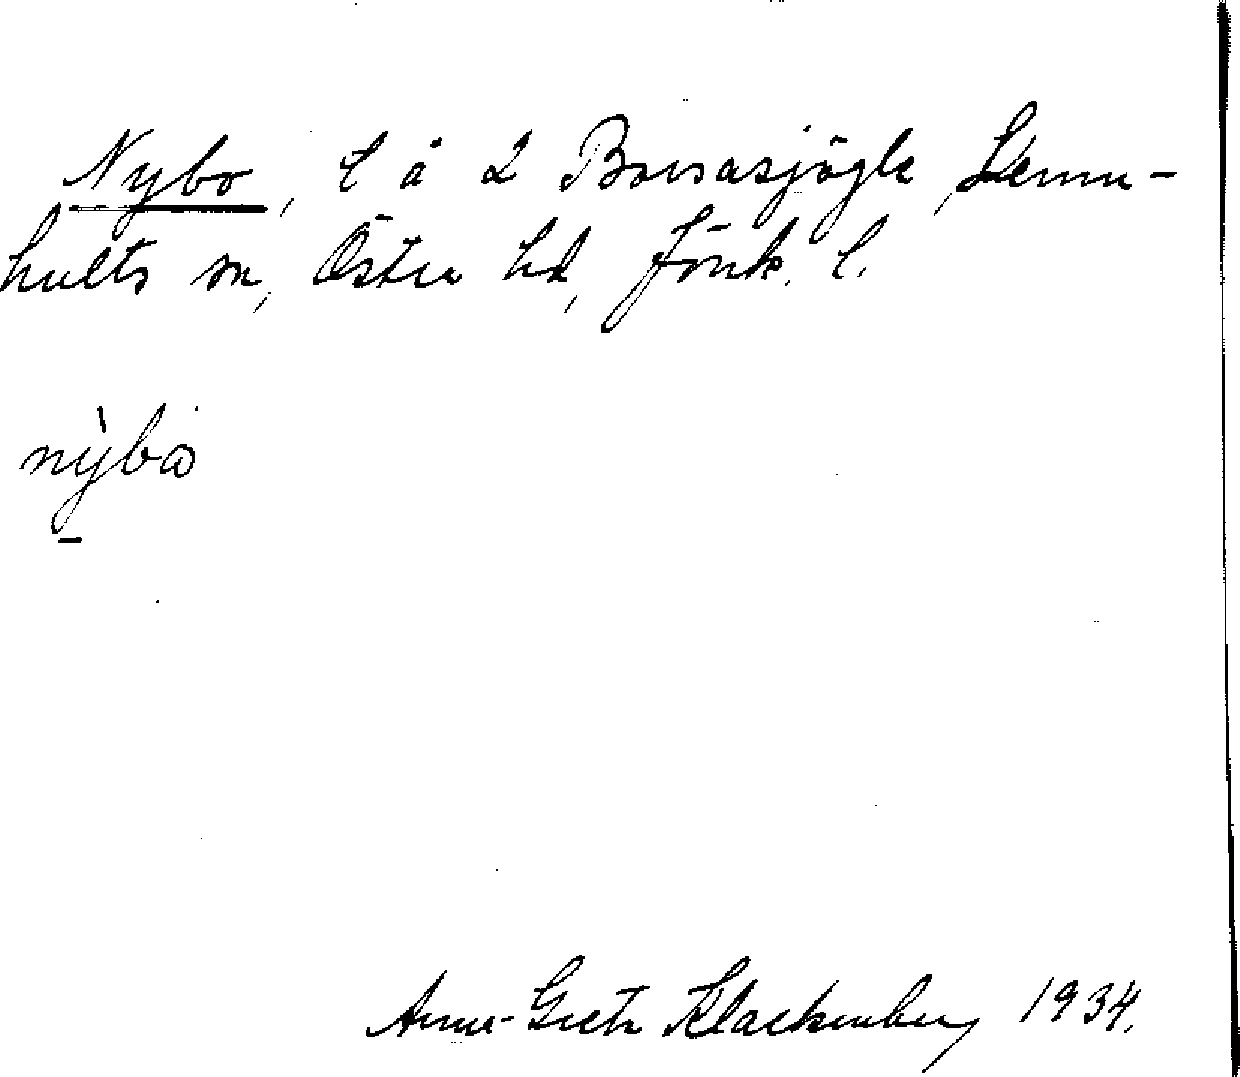 Nybo, l å 2 Bousasjögle, Lemn-
hults sn, Östra hd, Jönk. l.
nỳbω
Anna-Greta Klackenberg 1934.